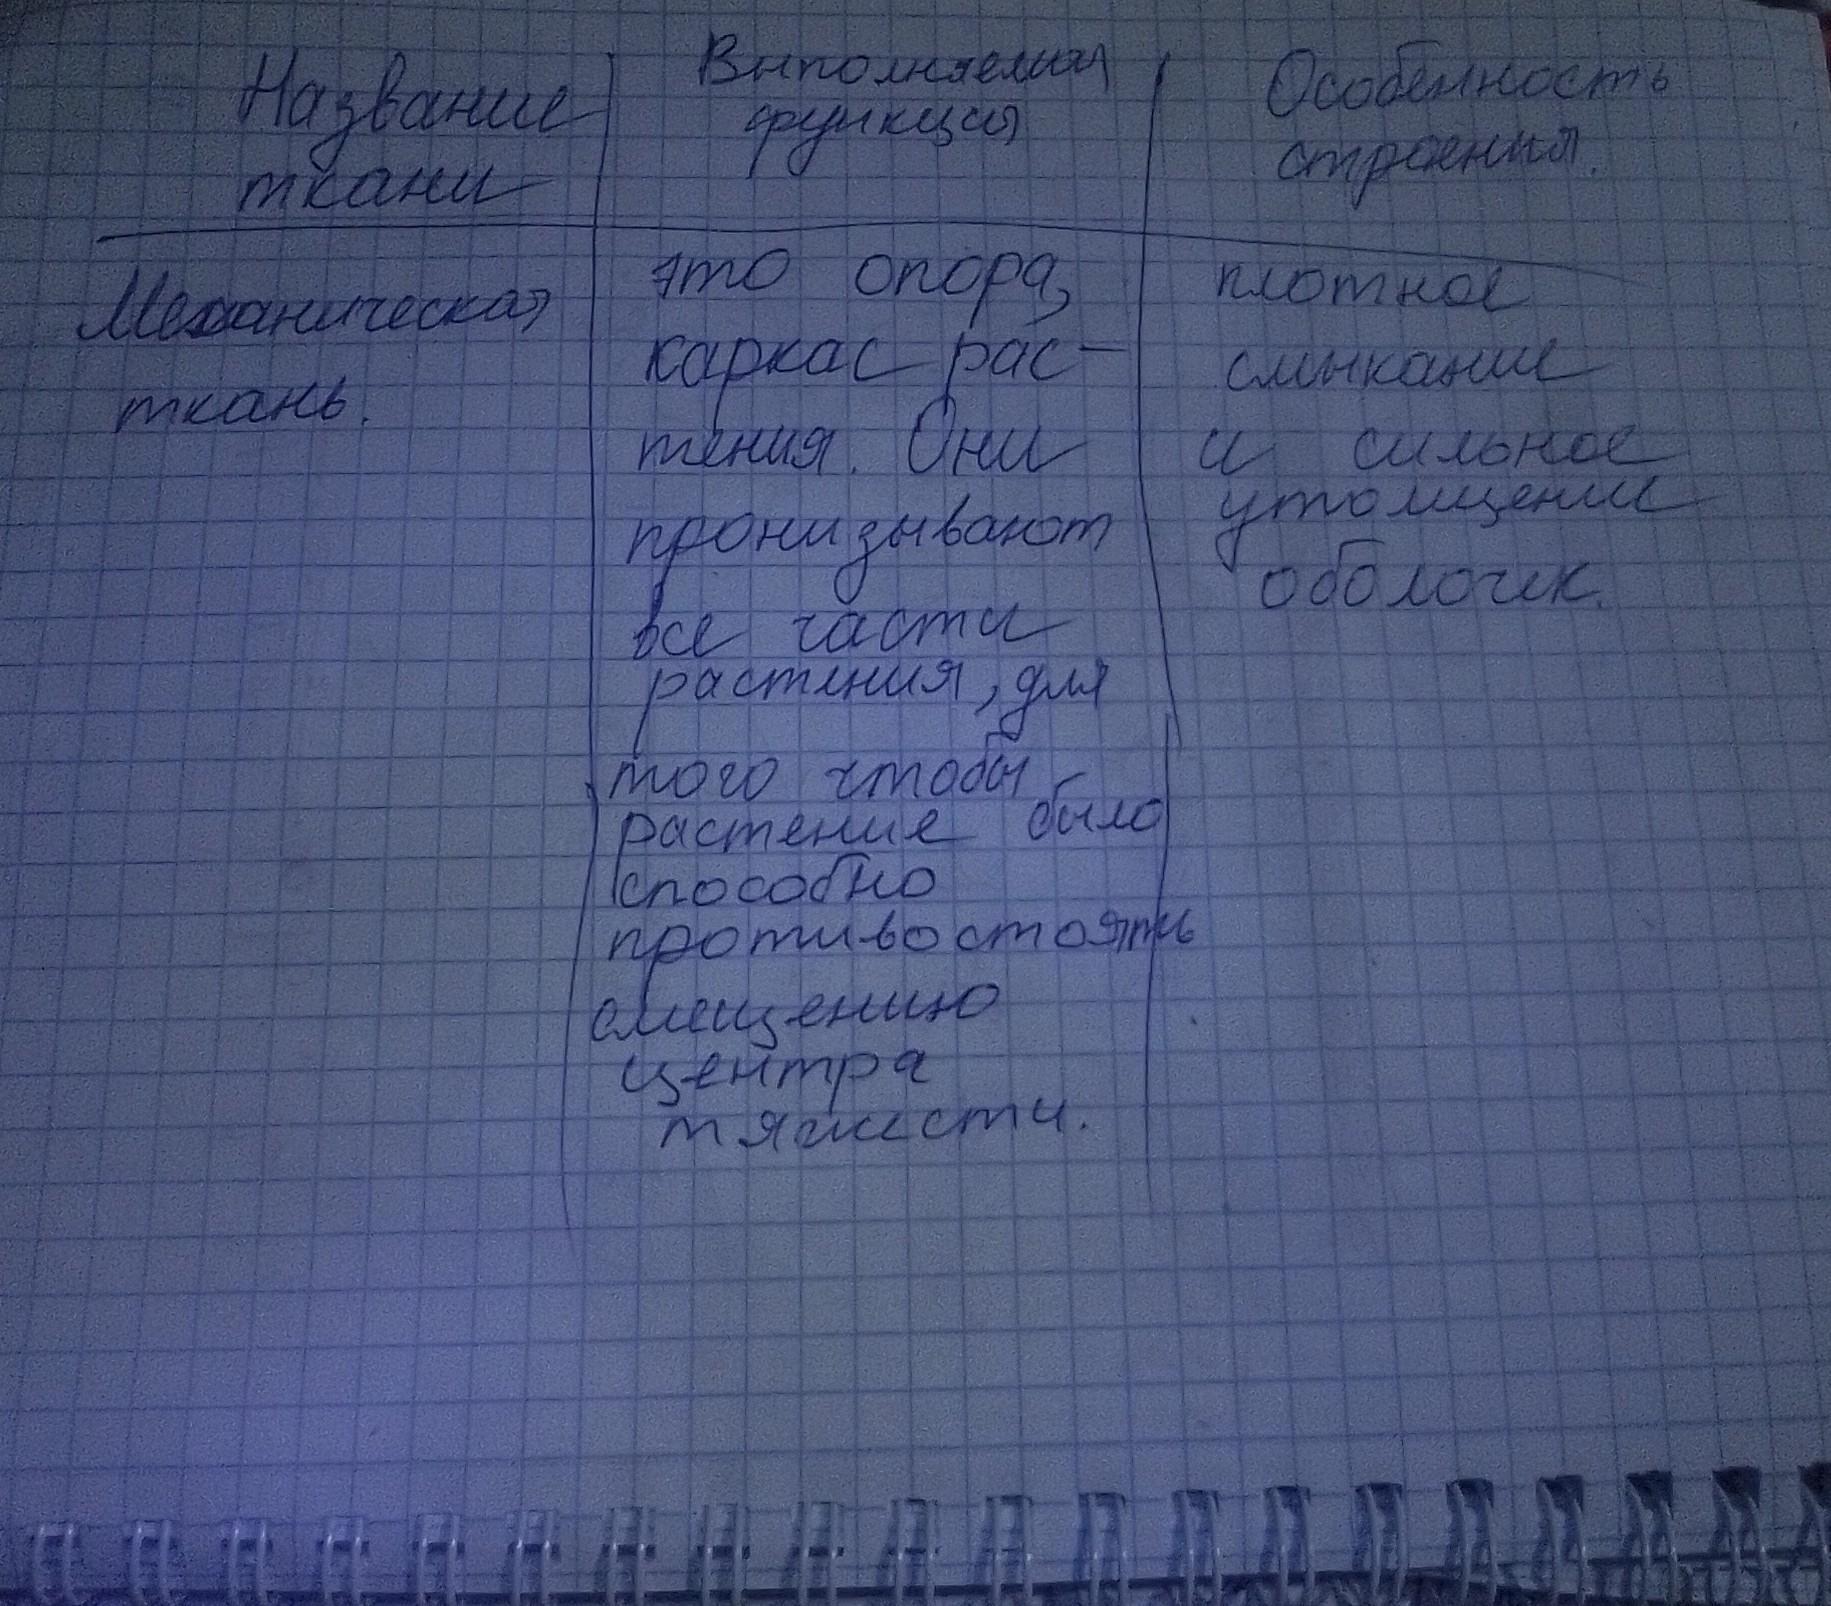 Название
ткани
Выполняемая
функция
Особенность
строения.
Механическая
ткань.
это опора,
каркас рас-
тения. Они
пронизывают
все части
растения, для
того чтобы
растение было
способно
противостоять
смещению
центра
тяжести.
плотное
смыкание
и сильное
утолщение
оболочек.